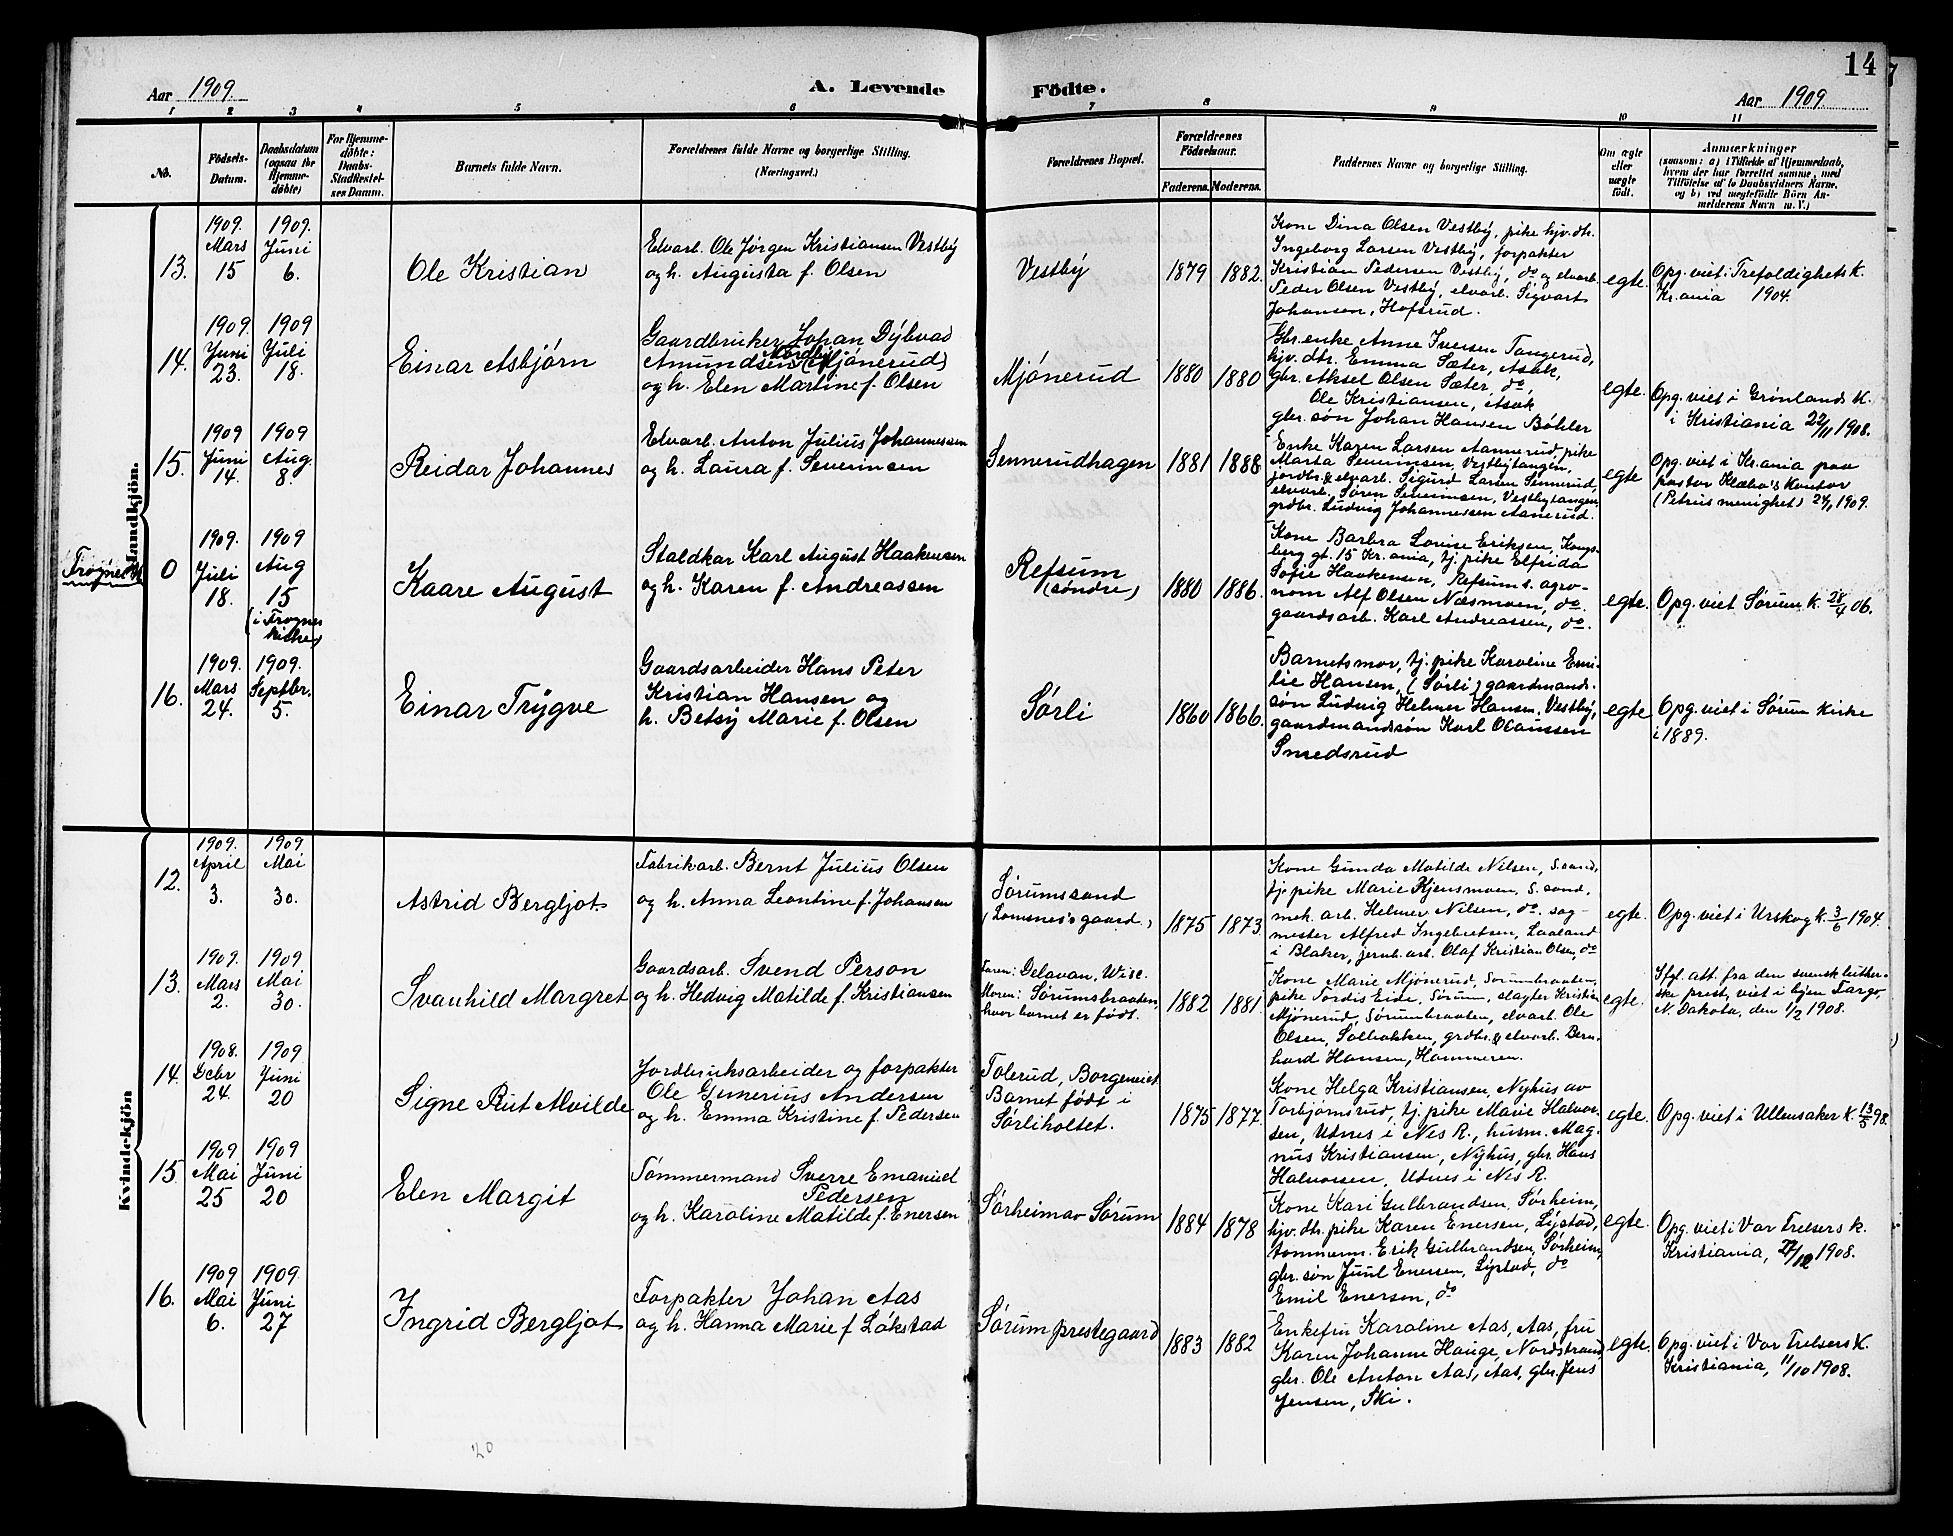 14
Aar 1909.
A. Levende
Födte.
Aar 1909.
1 2 3 4 5 6 7 8 9 10 11
No.
Födsels-
Datum.
Daabsdatum
(ogsaa for
Hjemme-
döbte)
For Hjemme-
döbte:
Daabs
Stadfæstel-
ses Datum.
Barnets fulde Navn.
Forældrenes fulde Navne og borgerlige Stilling.
(Næringsvei.)
Forældrenes Bopæl.
Forældrenes
Födselsaar.
Faderens. Moderens.
Faddernes Navne og borgerlige Stilling.
Om ægte
eller
uægte
født.
Anmærkninger
(saasom: a) i Tilfælde af Hjemmedaab,
hvem der har forrettet samme, med
Tilføielse af to Daabsvidners Navne,
og b) ved uægtefødte Börn An-
melderens Navn m. V.)
Mandkjön.
13.
1909.
Mars
15
1909.
Juni
6.
Ole Kristian
Elvarb. Ole Jørgen Kristiansen Vestby
og h. Augusta f. Olsen
Vestby
1879
1882.
Kone Dina Olsen Vestby, pike hjv. dtr.
Ingeborg Larsen Vestby, forpakter
Kristian Pedersen Vestby, do og elvarb.
Peder Olsen Vestby, elvarb. Sigvart
Johansen, Hofsrud.
egte.
Opg. viet i Trefoldighets k.
Kr.ania 1904.
14.
1909.
Juni
23.
1909
Juli
18.
Einar Asbjørn
Gaardbruker Johan Dybvad
Amundsen (Mjønerud)
Nordby
og h. Elen Martine f. Olsen
Mjønerud
1880
1880
Gbr. enke Anne Iversen Tangerud,
hjv. dtr. Emma Sæter, Asak,
Gbr. Aksel Olsen Sæter, do,
Ole Kristiansen, Asak
gbr. søn Johan Hansen Bøhler
egte.
Opg. viet i Grønlands k.
i Kristiania 22/11 1908.
15.
1909
Juni
14.
1909
Aug.
8.
Reidar Johannes
Elvarb. Anton Julius Johannessen
og h. Laura f. Severinsen
Sennerudhagen
1881
1888
Enke Karen Larsen Aannerud, pike
Marta Severinsen, Vestbytangen,
jordbr. & elvarb. Sigurd Larsen Sennerud,
elvarb. Søren Severinsen, Vestbytangen,
grdbr. Ludvig Johannessen Aanerud.
egte
Opg. viet i Kr.ania paa
pastor Klæbo's kontor
(Petrus menighet) 24/1 1909.
Frogner k.
0
1909.
Juli
18.
1909
Aug
15
(i Frogner
kirke)
Kaare August
Staldkar Karl August Haakensen
og h. Karen f. Andreassen
Refsum
(søndre)
1880
1886.
Kone Barbra Lovise Eriksen, Kongs-
berg gt. 15 Kr.ania, tj. pike Elfrida
Sofie Haakensen, Refsum s. agro-
nom Alf Olsen Næsmoen, do.
gaardsarb. Karl Andreassen, do.
egte.
Opg. viet Sørum k. 28/4 06.
16.
1909.
Mars
24.
1909.
Septbr.
5.
Einar Trygve
Gaardsarbeider Hans Peter
Kristian Hansen og
h. Betsy Marie f. Olsen
Sørli
1860
1866.
Barnets mor, tj. pike Karoline Emi-
lie Hansen, (Sørli) gaardmands-
søn Ludvig Helmer Hansen, Vestby,
gaardmandsøn Karl Olaussen
Smedsrud
egte
Opg. viet i Sørum kirke
i 1889.
Kvindekjön
12.
1909.
April
3.
1909
Mai
30.
Astrid Bergljot.
Fabrikarb. Bernt Julius Olsen
og h. Anna Leontine f. Johansen
Sørumsand
(Lomsnes's gaard.)
1875
1873
Kone Gunda Matilde Nilsen, S. sand,
tj. pike Marie Hjensmoen, S. sand,
mek. arb. Helmer Nilsen, do. sag-
mester Alfred Ingebretsen, Laaland
i Blaker, jernb. arb. Olaf Kristian Olsen, do
egte.
Opg. viet i Urskog k. 3/6 1904.
13.
1909.
Mars
2.
1909
Mai
30.
Svanhild Margret
Gaardsarb. Svend Person
og h. Hedvig Matilde f. Kristiansen
Faren: Delavan, Wisc.
Moren: Sørumsbraaten,
hvor barnet er født.
1882
1881.
Kone Marie Mjønerud, Sørumbraaten
pike Tordis Eide, Sørum, slagter Kristian
Mjønerud, Sørumbraaten, elvarb. Ole
Olsen, Solbakken, grdbr. & elvarb. Bern-
hard Hansen, Hammeren.
egte.
Ifgl. att. fra den svensk luther-
ske prest, viet i byen Fargo,
N. Dakota, den 1/2 1908.
14.
1908.
Decbr
24.
1909
Juni
20
Signe Rut Alvilde
Jordbruksarbeider og forpakter
Ole Gunerius Andersen
og h. Emma Kristine f. Pedersen
Tolerud, Borgeneiet
Barnet født i
Sørliholtet.
1875
1877.
Kone Helga Kristiansen, Nyhus av
Torbjørnsrud, tj. pike Marie Halvor-
sen, Udnes i Nes R., husm. Mag-
nus Kristiansen, Nyhus, gbr. Hans
Halvorsen, Udnes i Nes R.
egte.
Opg. viet i Ullensaker k. 13/5 98.
15.
1909
Mai
25
1909
Juni
20
Elen Margit
Tømmermand Sverre Emanuel
Pedersen
og h. Karoline Matilde f. Enersen
Sørheim av Sørum
1884
1878
Kone Kari Gulbrandsen, Sørheim,
hjv. dtr. pike Karen Enersen, Lystad,
tømmerm. Erik Gulbrandsen, Sørheim,
gbr. søn Juul Enersen, Lystad, do
Emil Enersen, do
egte.
Opg. viet i Vor Frelsers k.
Kristiania, 27/12 1908.
16.
1909
Mai
6.
1909.
Juni
27
Ingrid Bergljot
Forpakter Johan Aas
og h. Hanna Marie f. Løkstad
Sørum prestegaard
1883
1882
Enkefru Karoline Aas, Aas, fru
Karen Johanne Hauge, Nordstrand,
gbr. Ole Anton Aas, Aas, gbr. Jens
Jensen, Ski.
egte.
Opg. viet i Vor Frelsers k.
Kristiania, 11/10 1908.
20